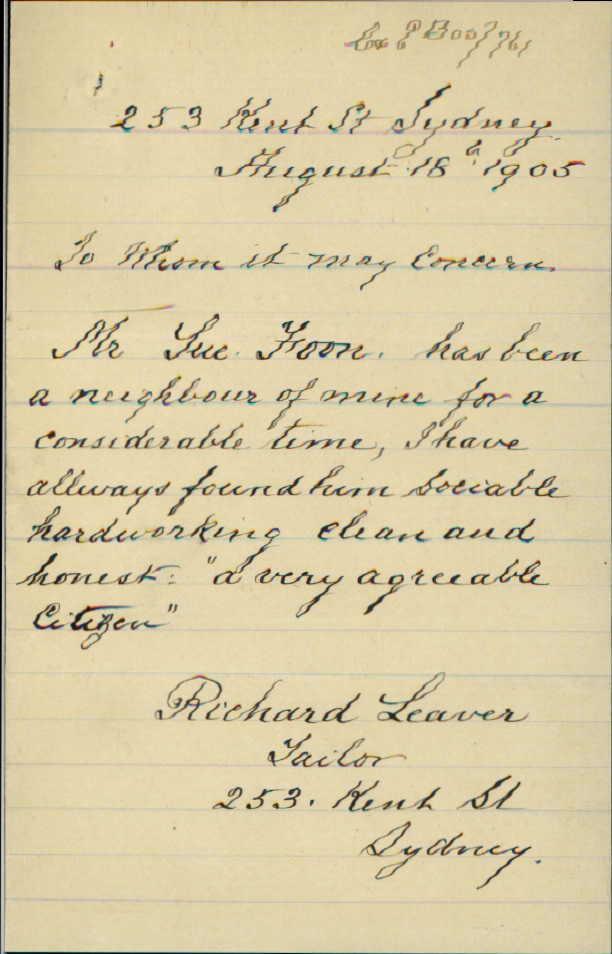 253 Kent St Sydney
August 18th 1905
To Whom it may Concern.
Mr Sue. Foon. has been
a neighbour of mine for a
considerable time, I have
allways found him sociable
hardworking clean and
honest: "a very agreeable
Citizen"
Richard Leaver
Tailor
253. Kent St
Sydney.